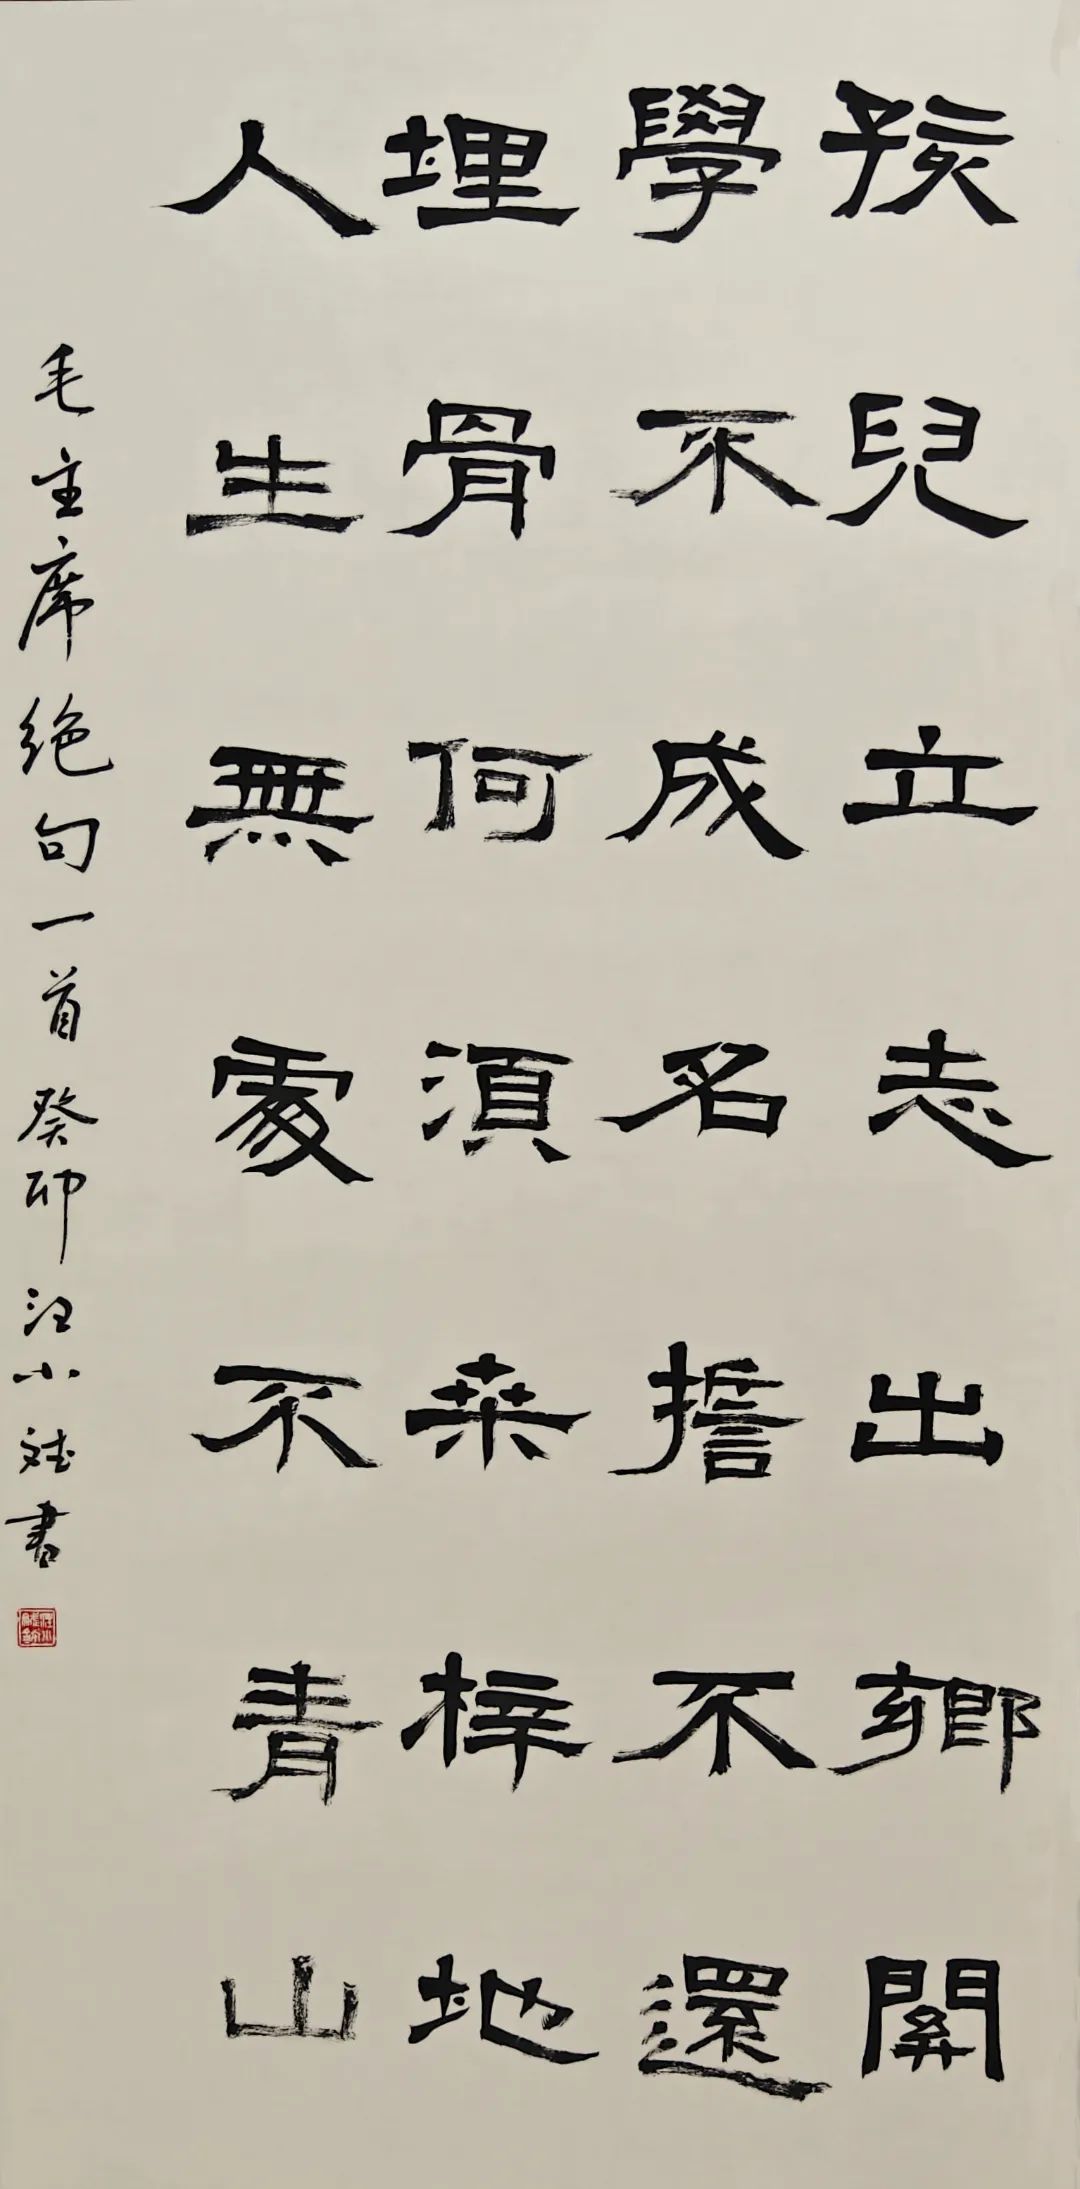 孩兒立志出鄉關
學不成名擔不還
埋骨何須桒梓地
人生無處不青山
毛主席绝句一首 癸卯 汪小斌書